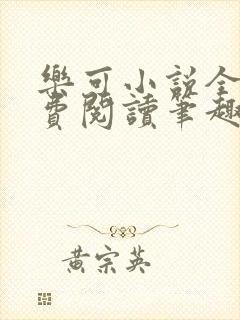 樂可小說全
費閱讀筆趣
黃宗英